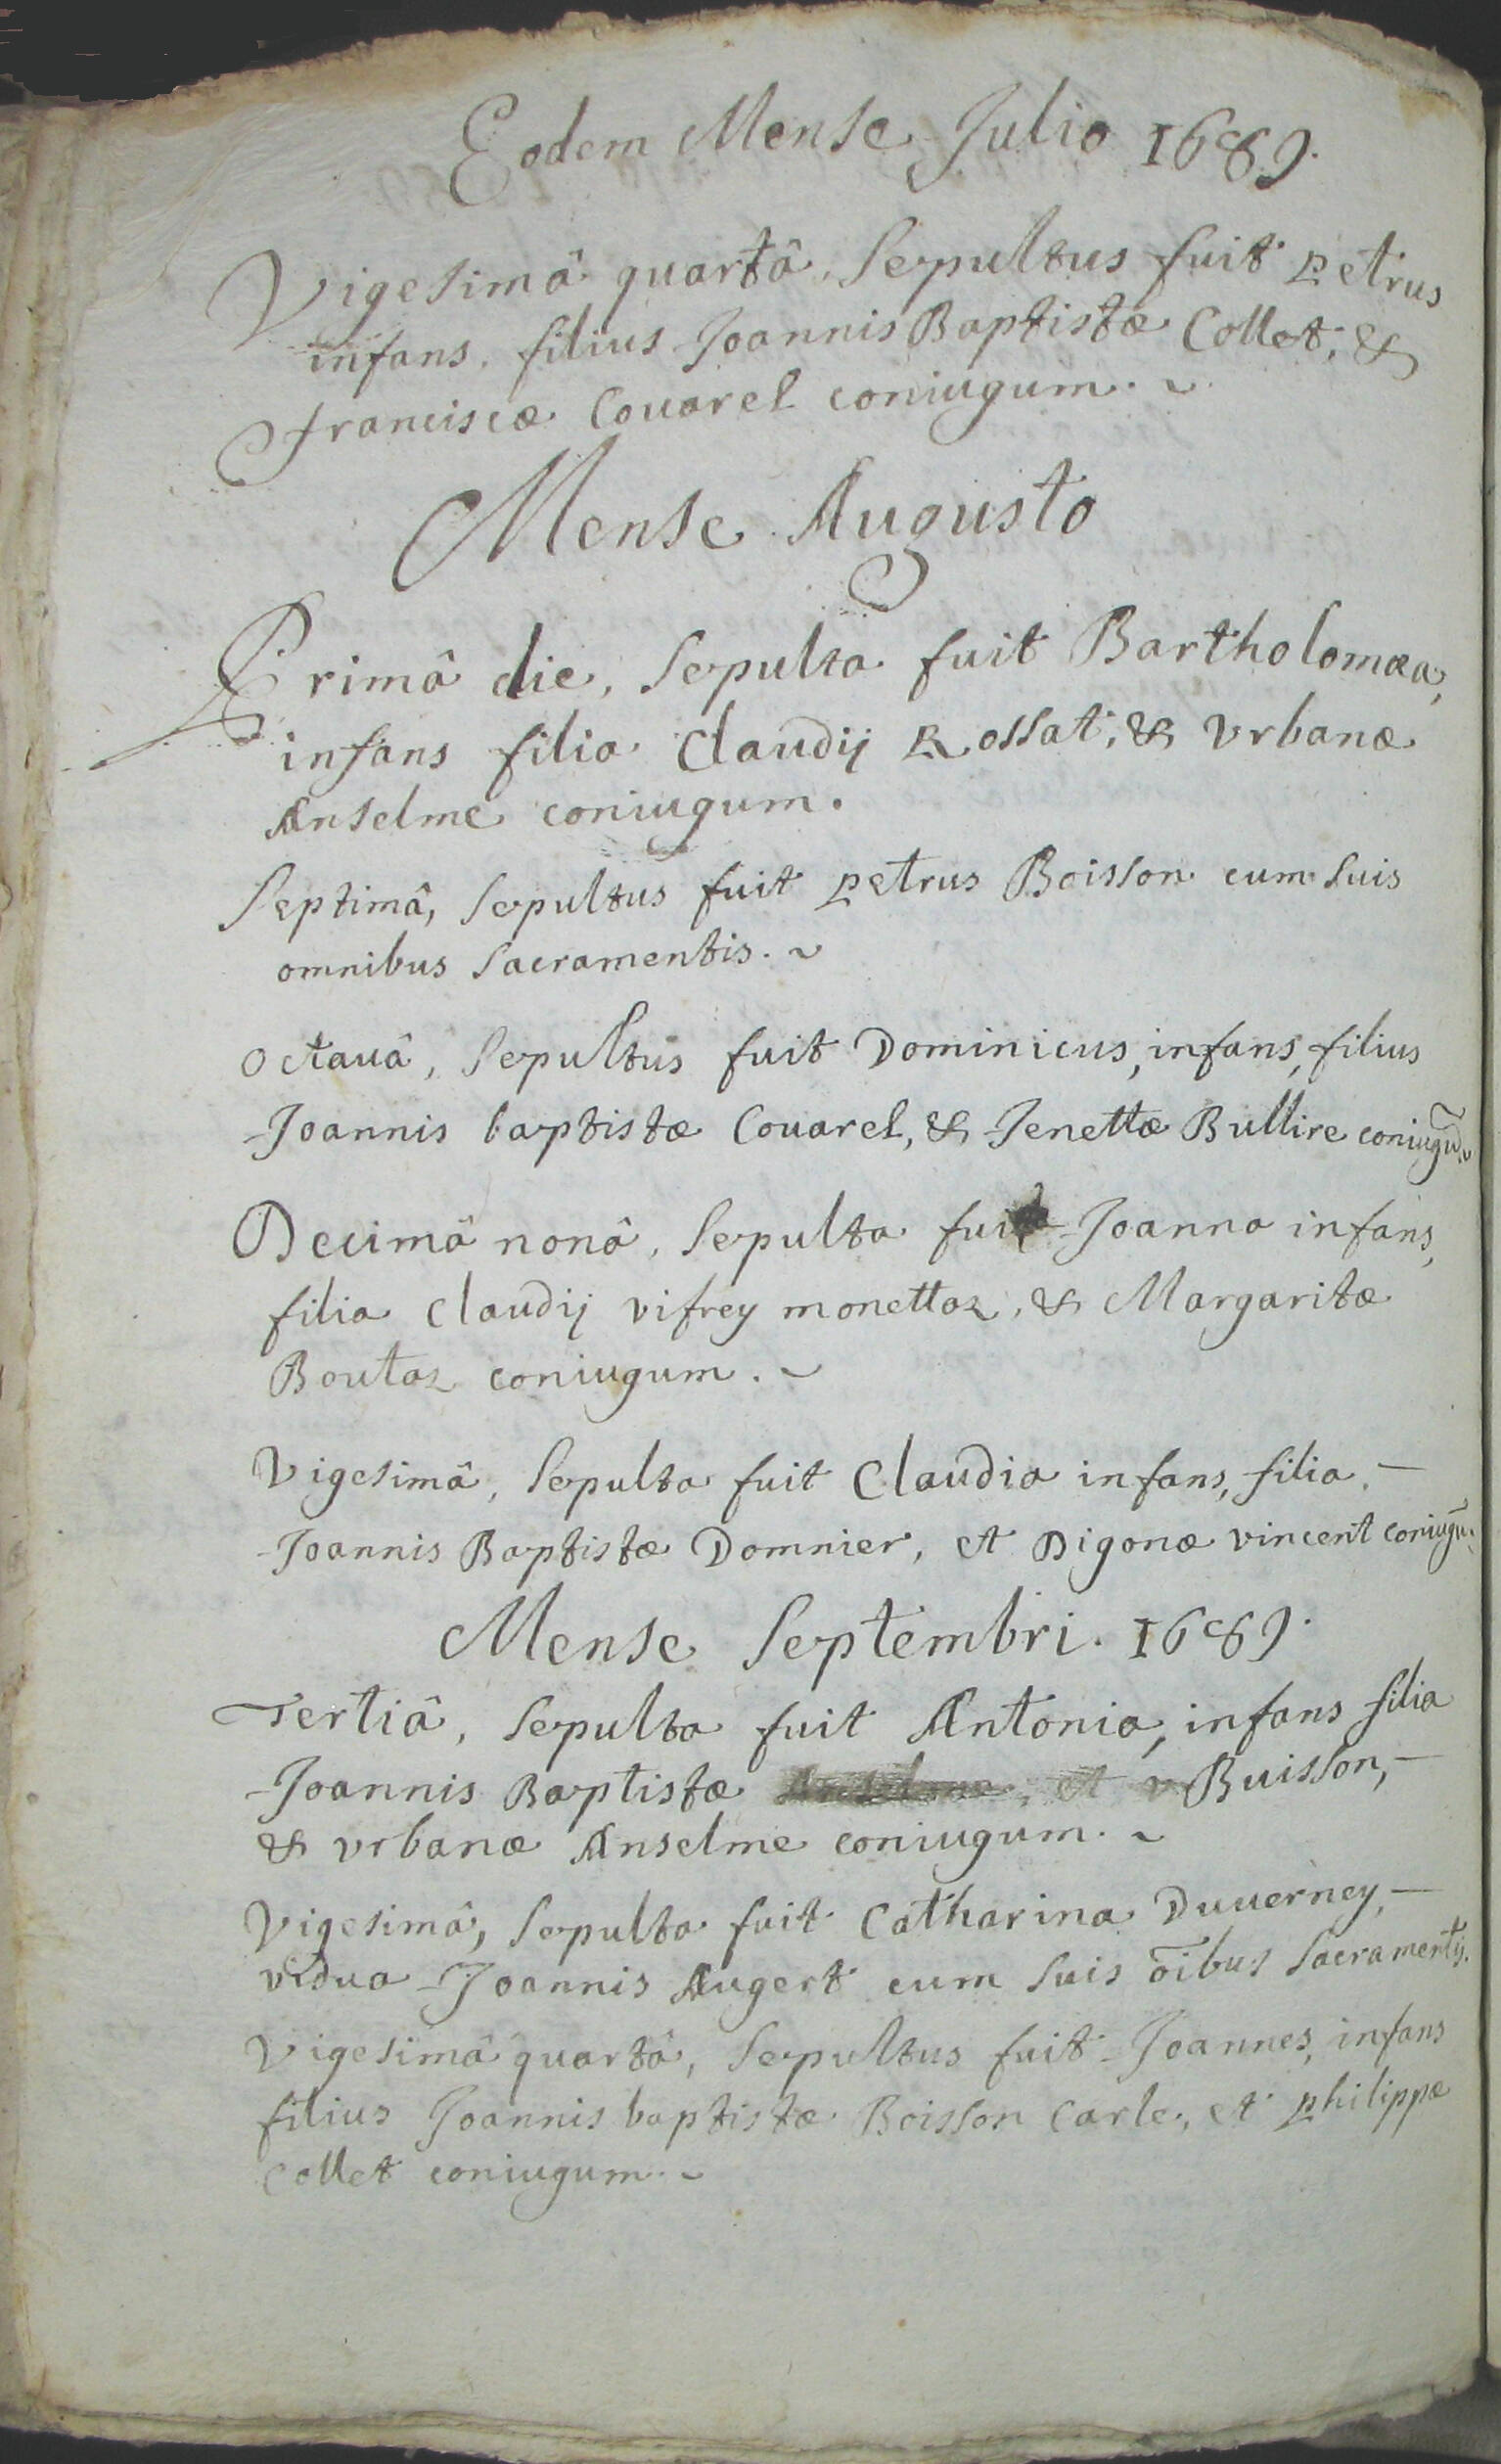 Eodem Mense Julio 1689.
Vigesimâ quartâ, Sepultus fuit Petrus
infans, filius Joannis Baptistæ Collet, &
franciscæ Couarel coniugum. ~
Mense Augusto
Primâ die, Sepulta fuit Bartholomæa,
infans filia Claudij Rossat, & Vrbanæ
Anselme coniugum.
Septimâ, Sepultus fuit Petrus Boisson cum Suis
omnibus Sacramentis. ~
Octauâ, Sepultus fuit Dominicus, infans, filius
Joannis baptistæ Couarel, & Jenettæ Bullire coniugū. ~
Decimâ nonâ, Sepulta fuit Joanna infans,
filia Claudij vifrey monettaz, & Margaritæ
Boutaz coniugum. ~
Vigesimâ, Sepulta fuit Claudia infans, filia. —
Joannis Baptistæ Domnier, et Digonæ vincent coniugū.
Mense Septembri. 1689.
Tertiâ, Sepulta fuit Antonia, infans filia
Joannis Baptistæ Anselme, et v Buisson, —
& vrbanæ Anselme coniugum. ~
Vigesimâ, Sepulta fuit Catharina Duuerney, —
vidua Joannis Augert cum Suis oībus Sacramentis.
Vigesimâ quartâ, Sepultus fuit Joannes, infans
filius Joannis baptistæ Boisson Carle, et philippæ
Collet coniugum. ~